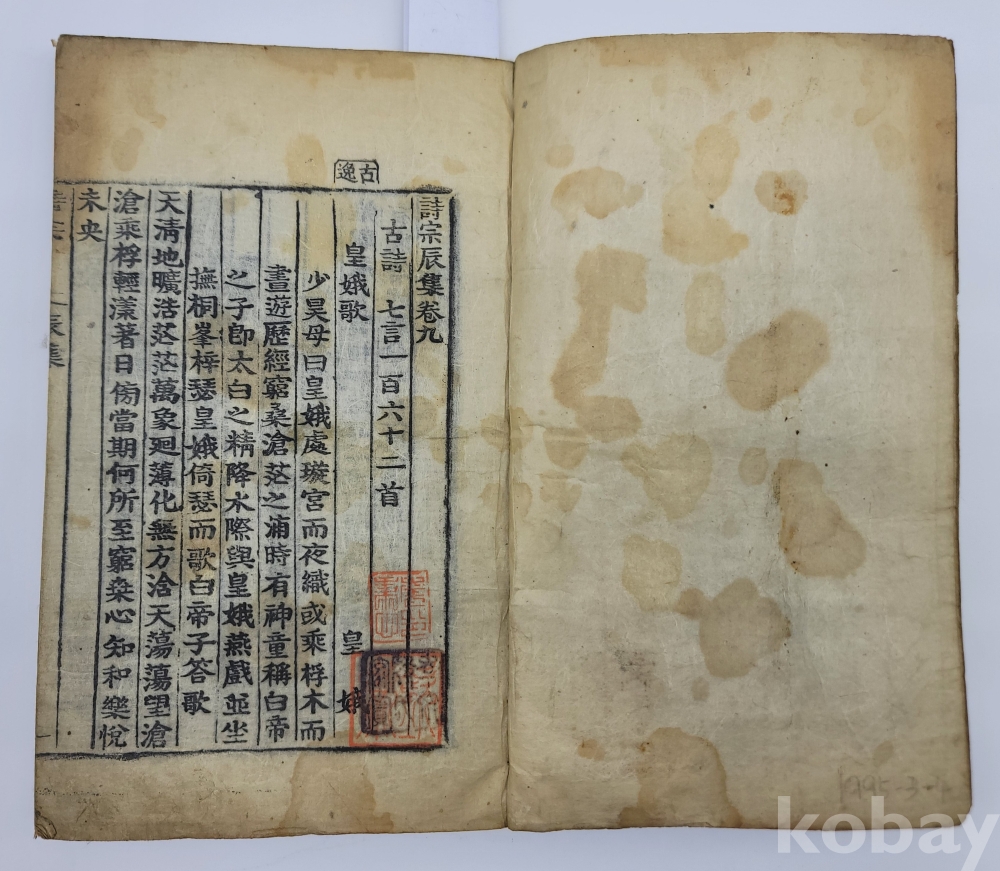 古逸
詩宗辰集卷九
古詩 七言一百六十二首
皇娥歌 皇娥
少昊母曰皇娥處璇宮而夜織或乘桴木而
晝遊歷經窮桑滄茫之浦時有神童稱白帝
之子卽太白之精降水際與皇娥燕戲並坐
撫桐峯梓瑟皇娥倚瑟而歌白帝子答歌
天淸地曠浩茫茫萬象廻薄化無方浛天蕩蕩望滄
滄乘桴輕漾著日傍當期何所至窮桒心知和樂悅
未央
辰集
kobay